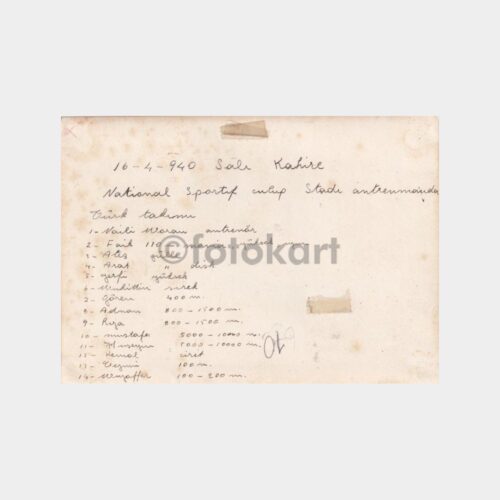 16-4-940 Salı Kahire
National Sportif Stadı antrenmanda
Türk takımı
1- Naili Moran antrenör
2- Faik 110 mania
3- Ateş gülle
4- Arat " disk
5- yüksek
6- Muhittin sırık
7- Gören 400 m.
8- Adnan 800-1500 m.
9- Rıza 800-1500 m.
10- mustafa 5000-10000 m.
11- Hüseyin 5000-10000 m.
15- Kemal cirit
13- 100 m.
14- Muzaffer 100-200 m.
©fotokart